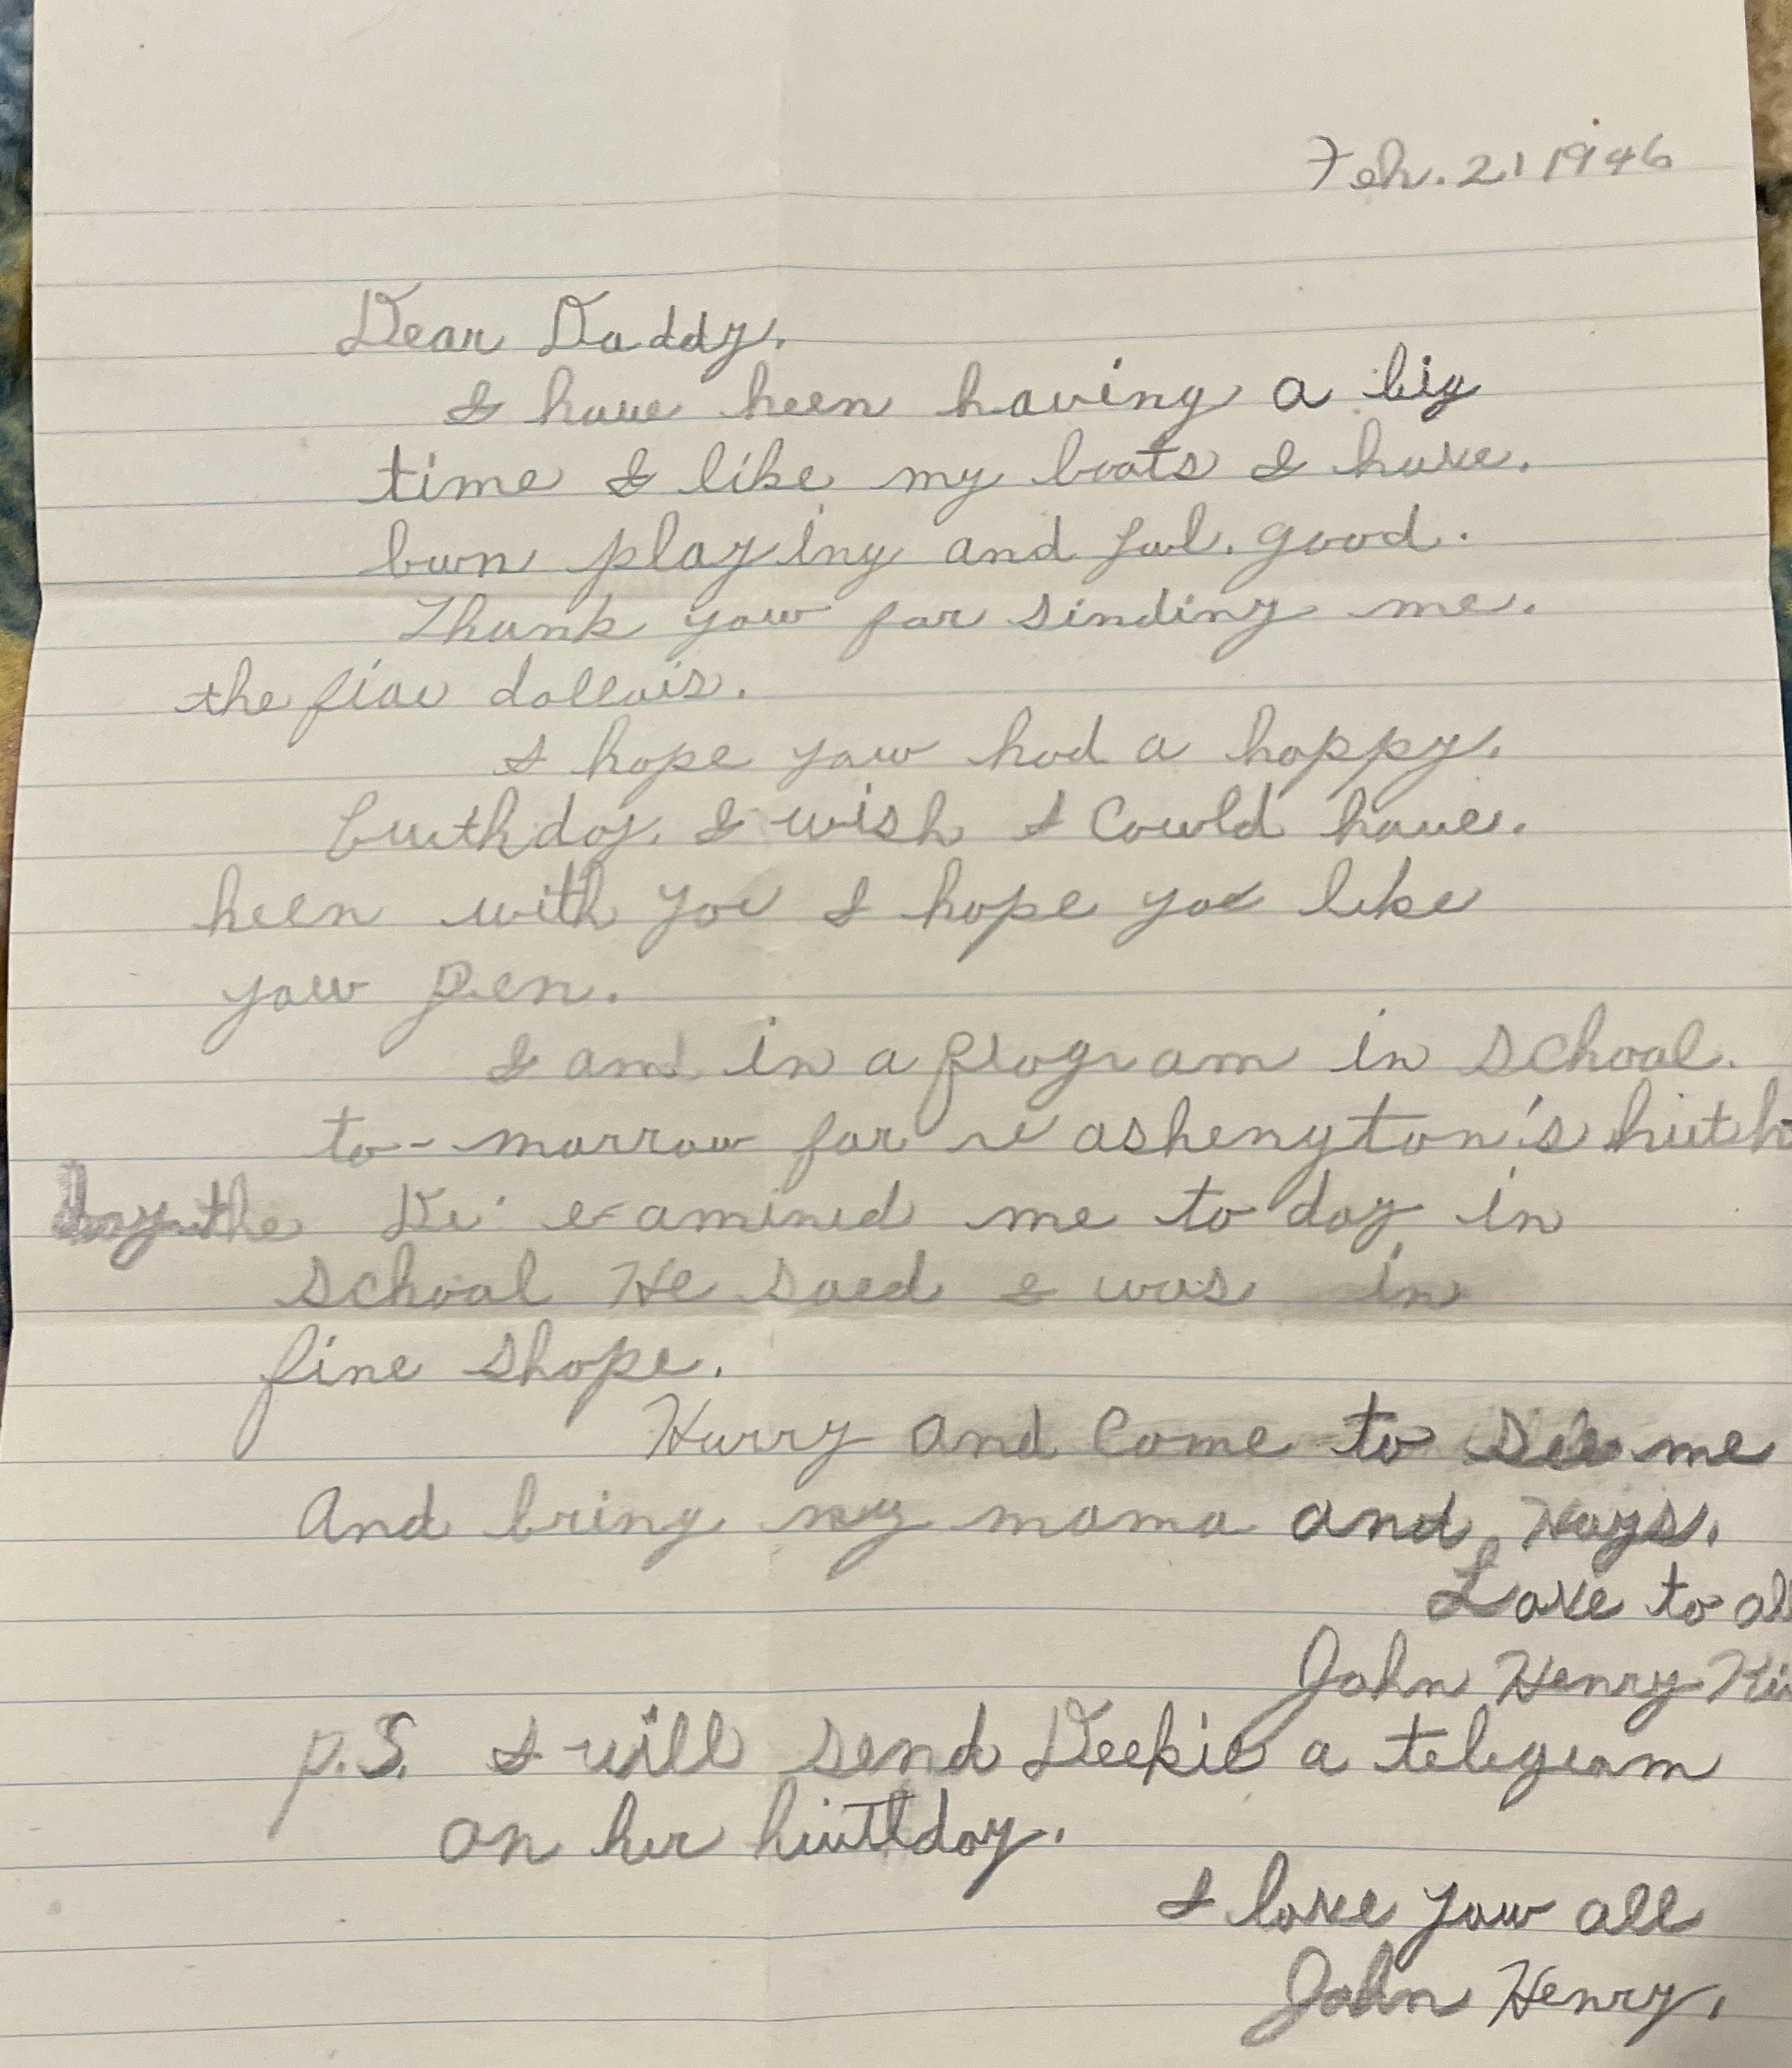 Feb. 21 1946
Dear Daddy,
I have been having a big
time I like my boats I have.
been playing and feel. good.
Thank you for sinding me.
the five dollars.
I hope you had a happy.
birthday. I wish I Could have.
been with you I hope you like
your pen.
I am in a program in school.
to-morrow for washengton's birth
day the Dr. examined me to day in
school He saed I was in
fine shape.
Hurry and Come to see me
And bring my mama and Hays.
Love to all
John Henry
P.S. I will send Deekie a telegram
on her birthday.
I love you all
John Henry.